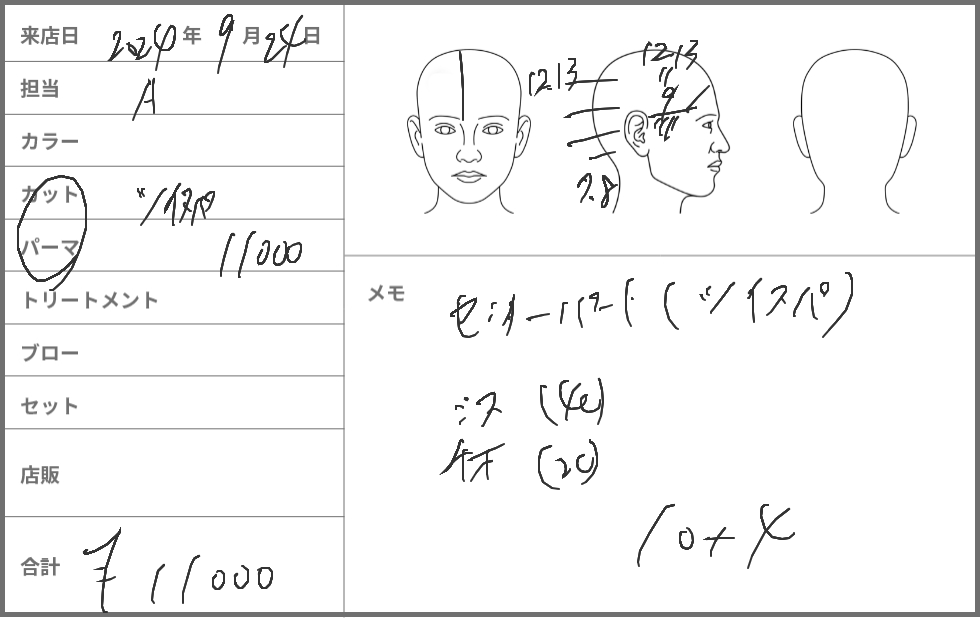 来店日 2024年 9月24日
担当 A
カラー
カット ツイスパ
パーマ 11000
トリートメント
ブロー
セット
店販
合計 ¥11000
12.13
12.13
11
9
7.8
メモ
センターパート (ツイスパ)
シス (40)
(20)
10+4